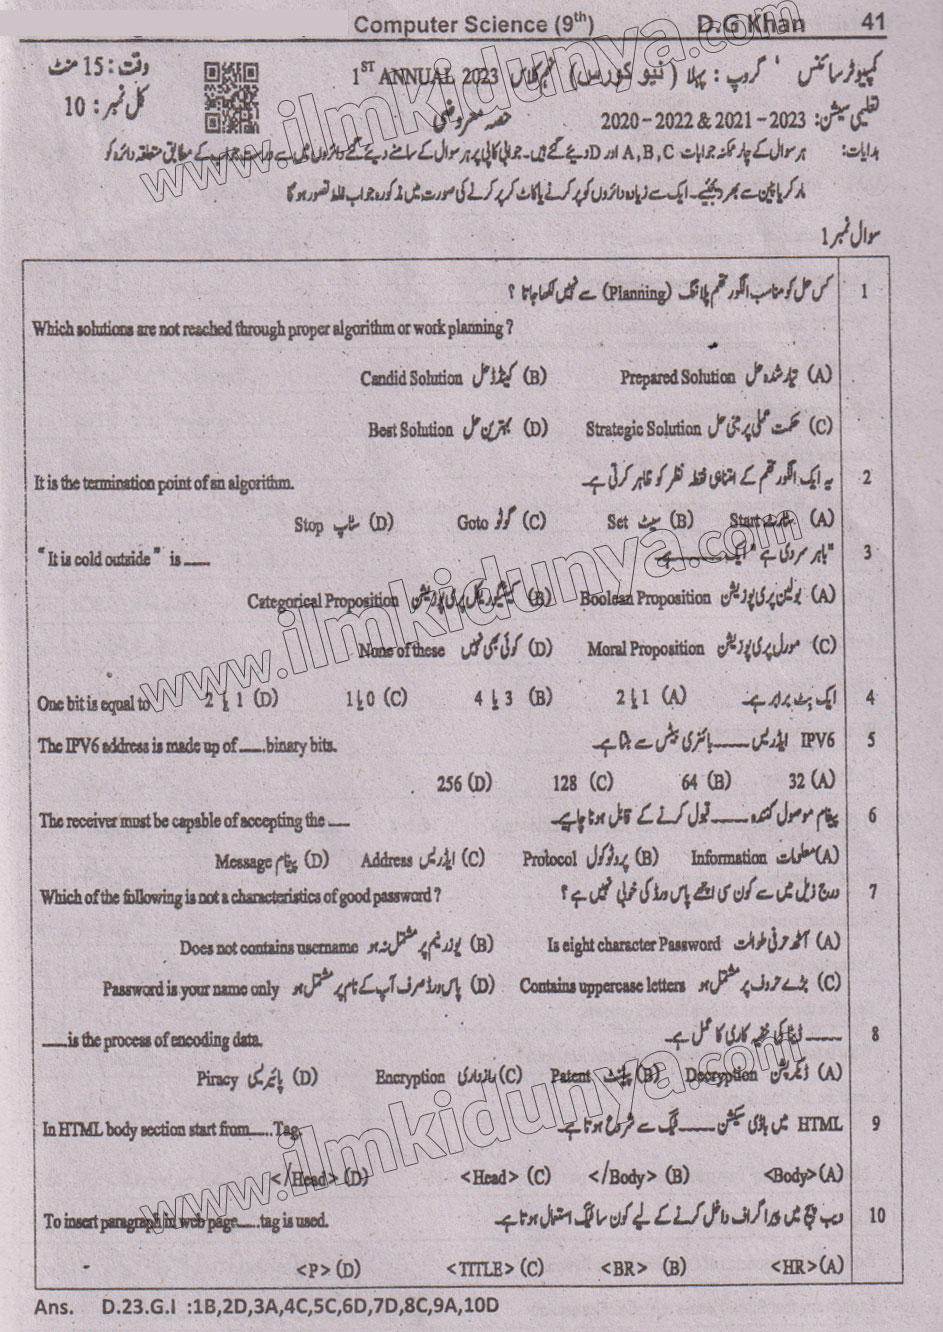 Computer Science (9th) D.G Khan 41
کمپیوٹر سائنس گروپ : پہلا (نیو کورس) نہم کلاس 1ST ANNUAL 2023 وقت : 15 منٹ
تعلیمی سیشن: 2020 – 2022 & 2021 – 2023 حصہ معروضی کل نمبر : 10
ہدایات: ہر سوال کے چار ممکنہ جوابات A, B, C اور D دیئے گئے ہیں۔ جوابی کاپی پر ہر سوال کے سامنے دیئے گئے دائروں میں سے درست جواب کے مطابق متعلقہ دائرہ کو
مارکر یا پین سے بھر دیجئیے۔ ایک سے زیادہ دائروں کو پر کرنے یا کاٹ کر پر کرنے کی صورت میں مذکورہ جواب غلط تصور ہو گا
سوال نمبر 1
1 کس حل کو مناسب الگورتھم پلاننگ (Planning) سے نہیں لکھا جاتا ؟
Which solutions are not reached through proper algorithm or work planning ?
(A) تیار شدہ حل Prepared Solution (B) کینڈڈ حل Candid Solution
(C) حکمت عملی پر مبنی حل Strategic Solution (D) بہترین حل Best Solution
2 یہ ایک الگورتھم کے اختتامی نقطہ نظر کو ظاہر کرتی ہے۔ It is the termination point of an algorithm.
(A) سٹارٹ Start (B) سیٹ Set (C) گوٹو Goto (D) سٹاپ Stop
3 "باہر سردی ہے" ایک ____ ہے۔ "It is cold outside" is ____
(A) بولین پری پوزیشن Boolean Proposition (B) کیٹیگوریکل پری پوزیشن Categorical Proposition
(C) مورل پری پوزیشن Moral Proposition (D) کوئی بھی نہیں None of these
4 ایک بٹ برابر ہے۔ (A) 1 یا 2 (B) 3 یا 4 (C) 0 یا 1 (D) 1 یا 2 One bit is equal to
5 IPV6 ایڈریس ____ بائنری بیٹس سے بنتا ہے۔ The IPV6 address is made up of ____ binary bits.
(A) 32 (B) 64 (C) 128 (D) 256
6 پیغام موصول کنندہ ____ قبول کرنے کے قابل ہونا چاہیے۔ The receiver must be capable of accepting the ____
(A) معلومات Information (B) پروٹوکول Protocol (C) ایڈریس Address (D) پیغام Message
7 درج ذیل میں سے کون سی اچھے پاس ورڈ کی خوبی نہیں ہے؟ Which of the following is not a characteristics of good password ?
(A) آٹھ حرفی طوالت Is eight character Password (B) یوزر نیم پر مشتمل نہ ہو Does not contains username
(C) بڑے حروف پر مشتمل ہو Contains uppercase letters (D) پاس ورڈ صرف آپ کے نام پر مشتمل ہو Password is your name only
8 ____ ڈیٹا کی خفیہ کاری کا عمل ہے۔ ____ is the process of encoding data.
(A) ڈیکرپشن Decryption (B) پیٹنٹ Patent (C) رازداری Encryption (D) پائیریسی Piracy
9 HTML میں باڈی سیکشن ____ ٹیگ سے شروع ہوتا ہے۔ In HTML body section start from ____ Tag.
(A) <Body> (B) </Body> (C) <Head> (D) </Head>
10 ویب پیج میں پیراگراف داخل کرنے کے لیے کون سا ٹیگ استعمال ہوتا ہے۔ To insert paragraph in web page ____ tag is used.
(A) <HR> (B) <BR> (C) <TITLE> (D) <P>
Ans. D.23.G.I :1B,2D,3A,4C,5C,6D,7D,8C,9A,10D
www.ilmkidunya.com
www.ilmkidunya.com
www.ilmkidunya.com